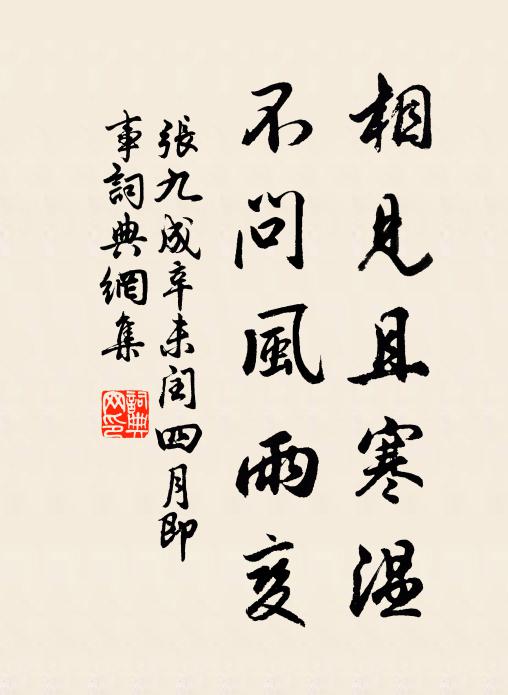 相見且寒溫
不問風雨夜
張九成辛未閏四月即
事詞典網集
詞典
网印